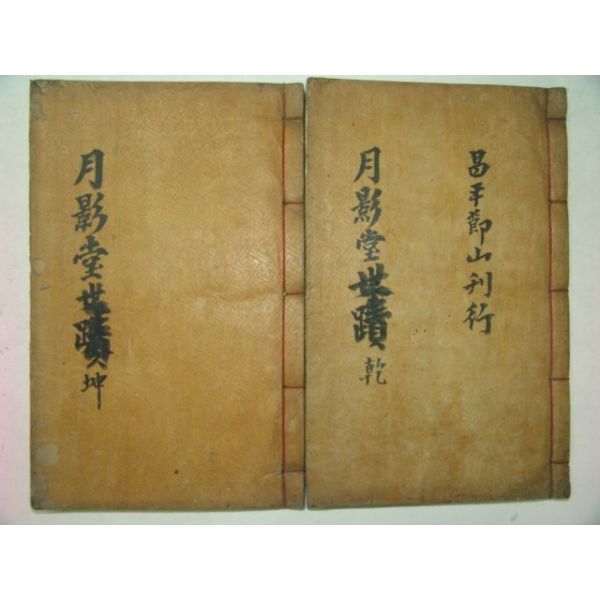 昌平節山刊行
月影堂世蹟 乾
月影堂世蹟 坤